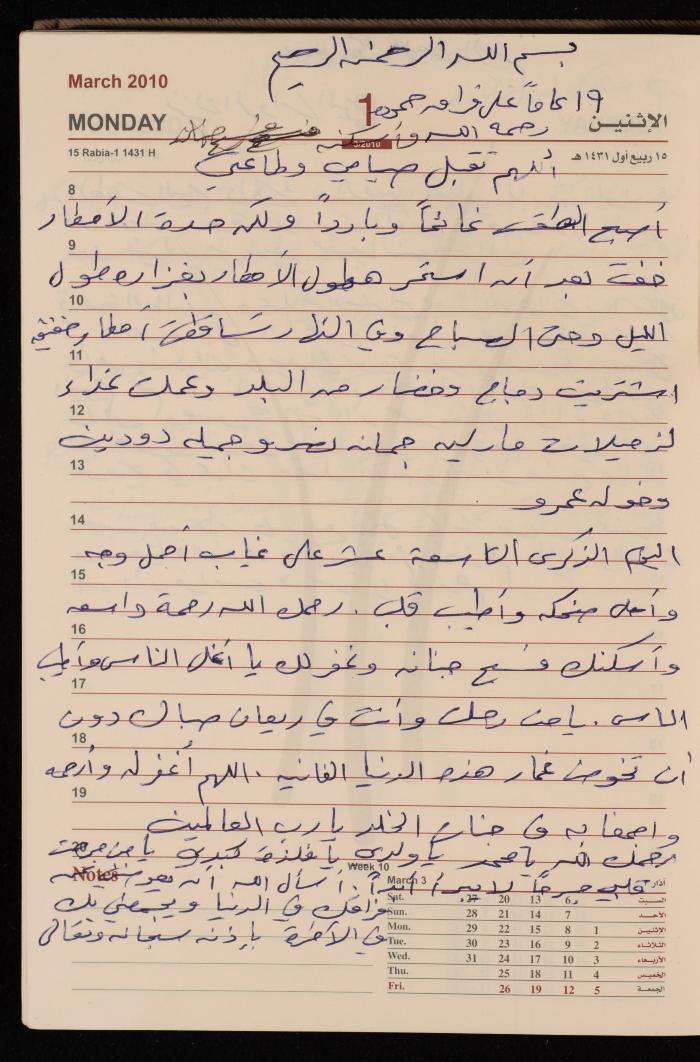 بسم الله الرحمن الرحيم
March 2010
١٩ عاماً على فراق حمودي
MONDAY 1 الإثنين
رحمه الله وأسكنه فسيح جنانه
15 Rabia-1 1431 H 3/2010 ١٥ ربيع أول ١٤٣١ هـ
اللهم تقبل صيامي وطاعتي
8
أصبح الطقس غائماً وبارداً ولكن حدة الأمطار
9
خفت بعد أن استمر هطول الأمطار بغزاره طول
10
الليل وحتى الصباح وفي النهار تساقطت أمطار خفيفه
11
اشتريت دجاج وخضار من البلد وعملت غداء
12
لزميلات ماريه جمانه نصر وجميله دودين
13
وخوله عمرو
14
اليوم الذكرى التاسعة عشر على غياب أجمل وجه
15
وأحلى ضحكه وأطيب قلب . رحمك الله رحمة واسعه
16
وأسكنك فسيح جنانه وغفر لك يا أغلى الناس وأطيب
17
الناس . يا من رحلت وأنت في ريعان صباك دون
18
أن تخوض غمار هذه الدنيا الفانيه . اللهم أغفر له وأرحمه
19
واجمعنا به في جنات الخلد يا رب العالمين
20
رحمك الله يا محمد يا ولدي يا فلذة كبدي يا من جرحت
Notes Week 10
قلبي جرحاً لا يبرأ أبداً . أسأل الله أن
March 3 آذار
فراقك في الدنيا ويجمعني بك
في الآخرة بإذنه سبحانه وتعالى
Sat. 27 20 13 6 السبت
Sun. 28 21 14 7 الأحد
Mon. 29 22 15 8 1 الإثنين
Tue. 30 23 16 9 2 الثلاثاء
Wed. 31 24 17 10 3 الأربعاء
Thu. 25 18 11 4 الخميس
Fri. 26 19 12 5 الجمعة